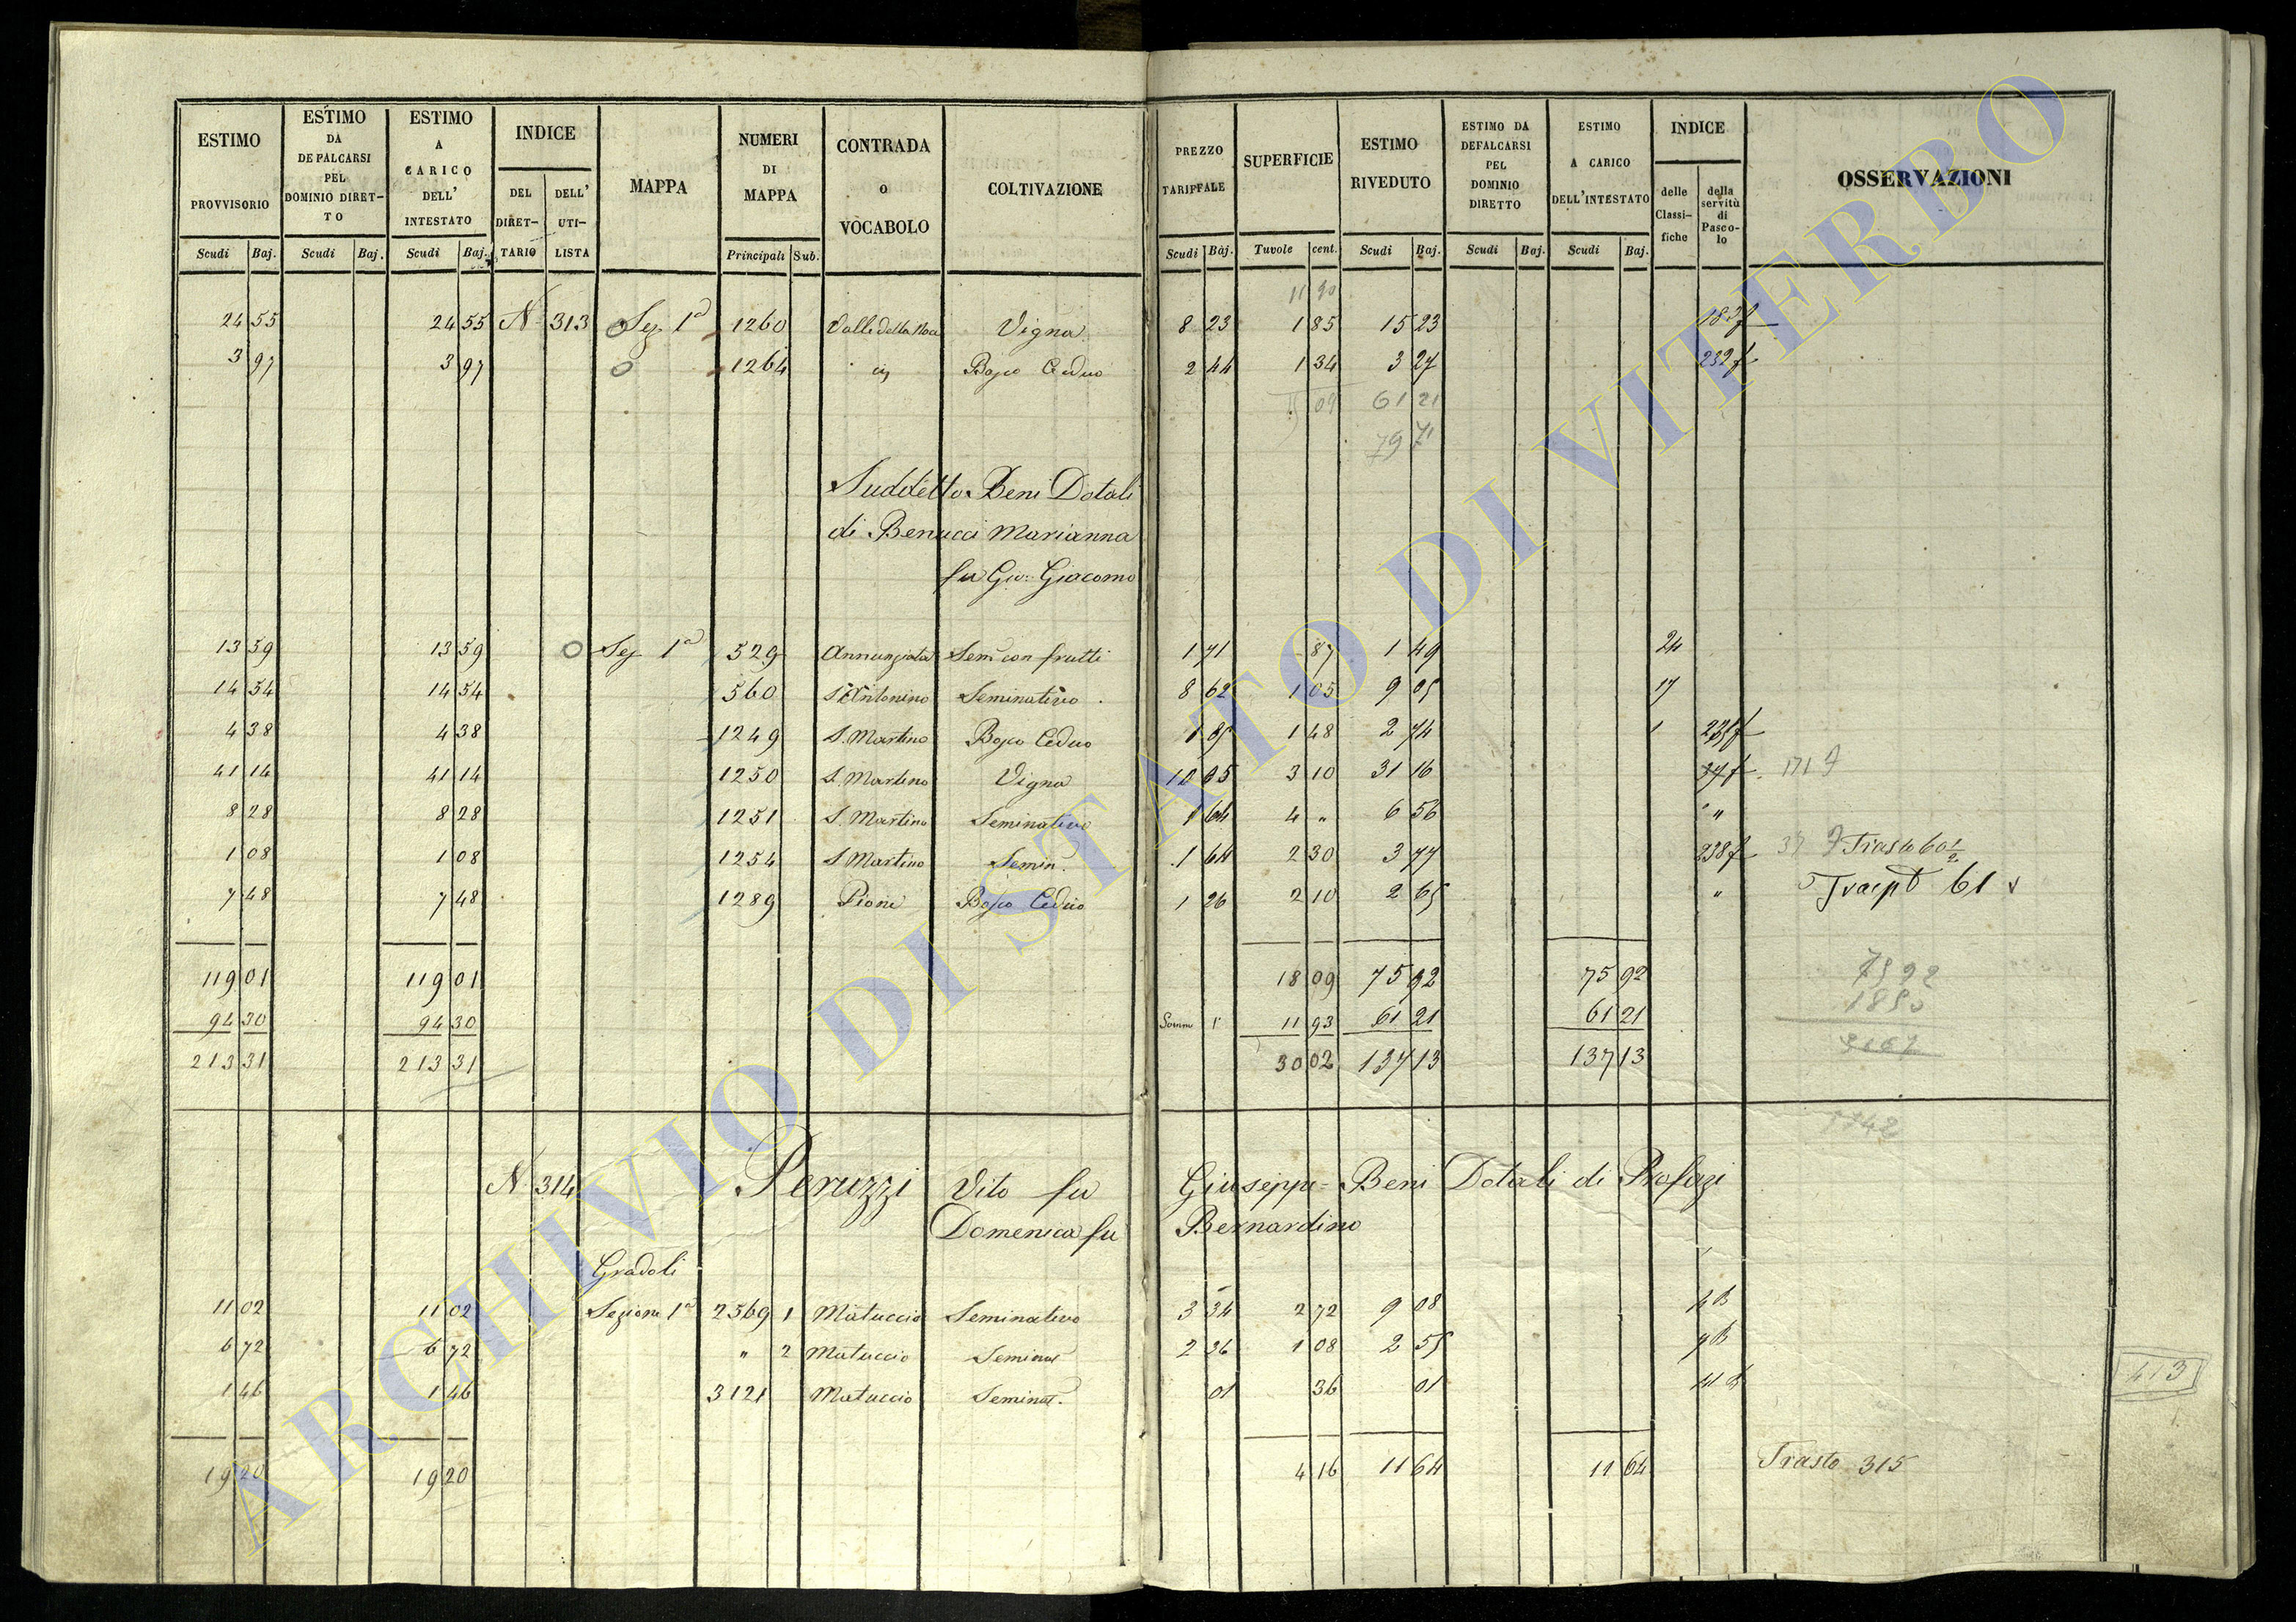 ESTIMO PROVVISORIO | ESTIMO DA DEFALCARSI PEL DOMINIO DIRETTO | ESTIMO A CARICO DELL' INTESTATO | INDICE DEL DIRETTARIO | DELL' UTILISTA | MAPPA | NUMERI DI MAPPA | CONTRADA o VOCABOLO | COLTIVAZIONE | PREZZO TARIFFALE | SUPERFICIE | ESTIMO RIVEDUTO | ESTIMO DA DEFALCARSI PEL DOMINIO DIRETTO | ESTIMO A CARICO DELL'INTESTATO | INDICE delle Classifiche | della servitù di Pascolo | OSSERVAZIONI
Scudi Baj. | Scudi Baj. | Scudi Baj. | Principali Sub. | Scudi Baj. | Tavole cent. | Scudi Baj. | Scudi Baj. | Scudi Baj.
11 90
24 55 | 24 55 | N. 313 | Sez. 1a | 1260 | Valle della Noce | Vigna | 8 23 | 1 85 | 15 23
3 97 | 3 97 | 1264 | Bosco Ceduo | 2 44 | 1 34 | 3 27 | 232 f
09 | 61 21
79 71
Suddetto Beni Dotali
di Benucci Marianna
fu Gio: Giacomo
13 59 | 13 59 | Sez 1a | 529 | Annunziata | Sem con frutti | 1 71 | 87 | 1 49 | 24
14 54 | 14 54 | 560 | S. Antonino | Seminativo | 8 62 | 1 05 | 9 05 | 17
4 38 | 4 38 | 1249 | S. Martino | Bosco Ceduo | 1 85 | 1 48 | 2 74 | 1
41 14 | 41 14 | 1250 | S. Martino | Vigna | 10 05 | 3 10 | 31 16 | 37 f | 171 f
8 28 | 8 28 | 1251 | S. Martino | Seminativo | 1 64 | 4 " | 6 56 | "
1 08 | 1 08 | 1254 | S Martino | Semin. | 1 64 | 2 30 | 3 77 | 238 f | 37 f Trasto 60 1/2
7 48 | 7 48 | 1289 | Pione | Bosco Ceduo | 1 26 | 2 10 | 2 65 | " | 61
119 01 | 119 01 | 18 09 | 75 92 | 75 92 | 7592
94 30 | 94 30 | Somma | 11 93 | 61 21 | 61 21 | 1850
213 31 | 213 31 | 30 02 | 137 13 | 137 13
N. 314 | Peruzzi Vito fu Giuseppe - Beni Dotali di Profazi
Domenica fu Bernardino
Gradoli
11 02 | 11 02 | Sezione 1a | 2569 1 | Matuccio | Seminativo | 3 34 | 2 72 | 9 08 | 4 B
6 72 | 6 72 | " 2 | Matuccio | Seminat | 2 36 | 1 08 | 2 55 | 9 B
1 46 | 1 46 | 3121 | Matuccio | Seminat. | 01 | 36 | 01 | 41 B
413
19 20 | 19 20 | 4 16 | 11 64 | 11 64 | Trasto 315
ARCHIVIO DI STATO DI VITERBO